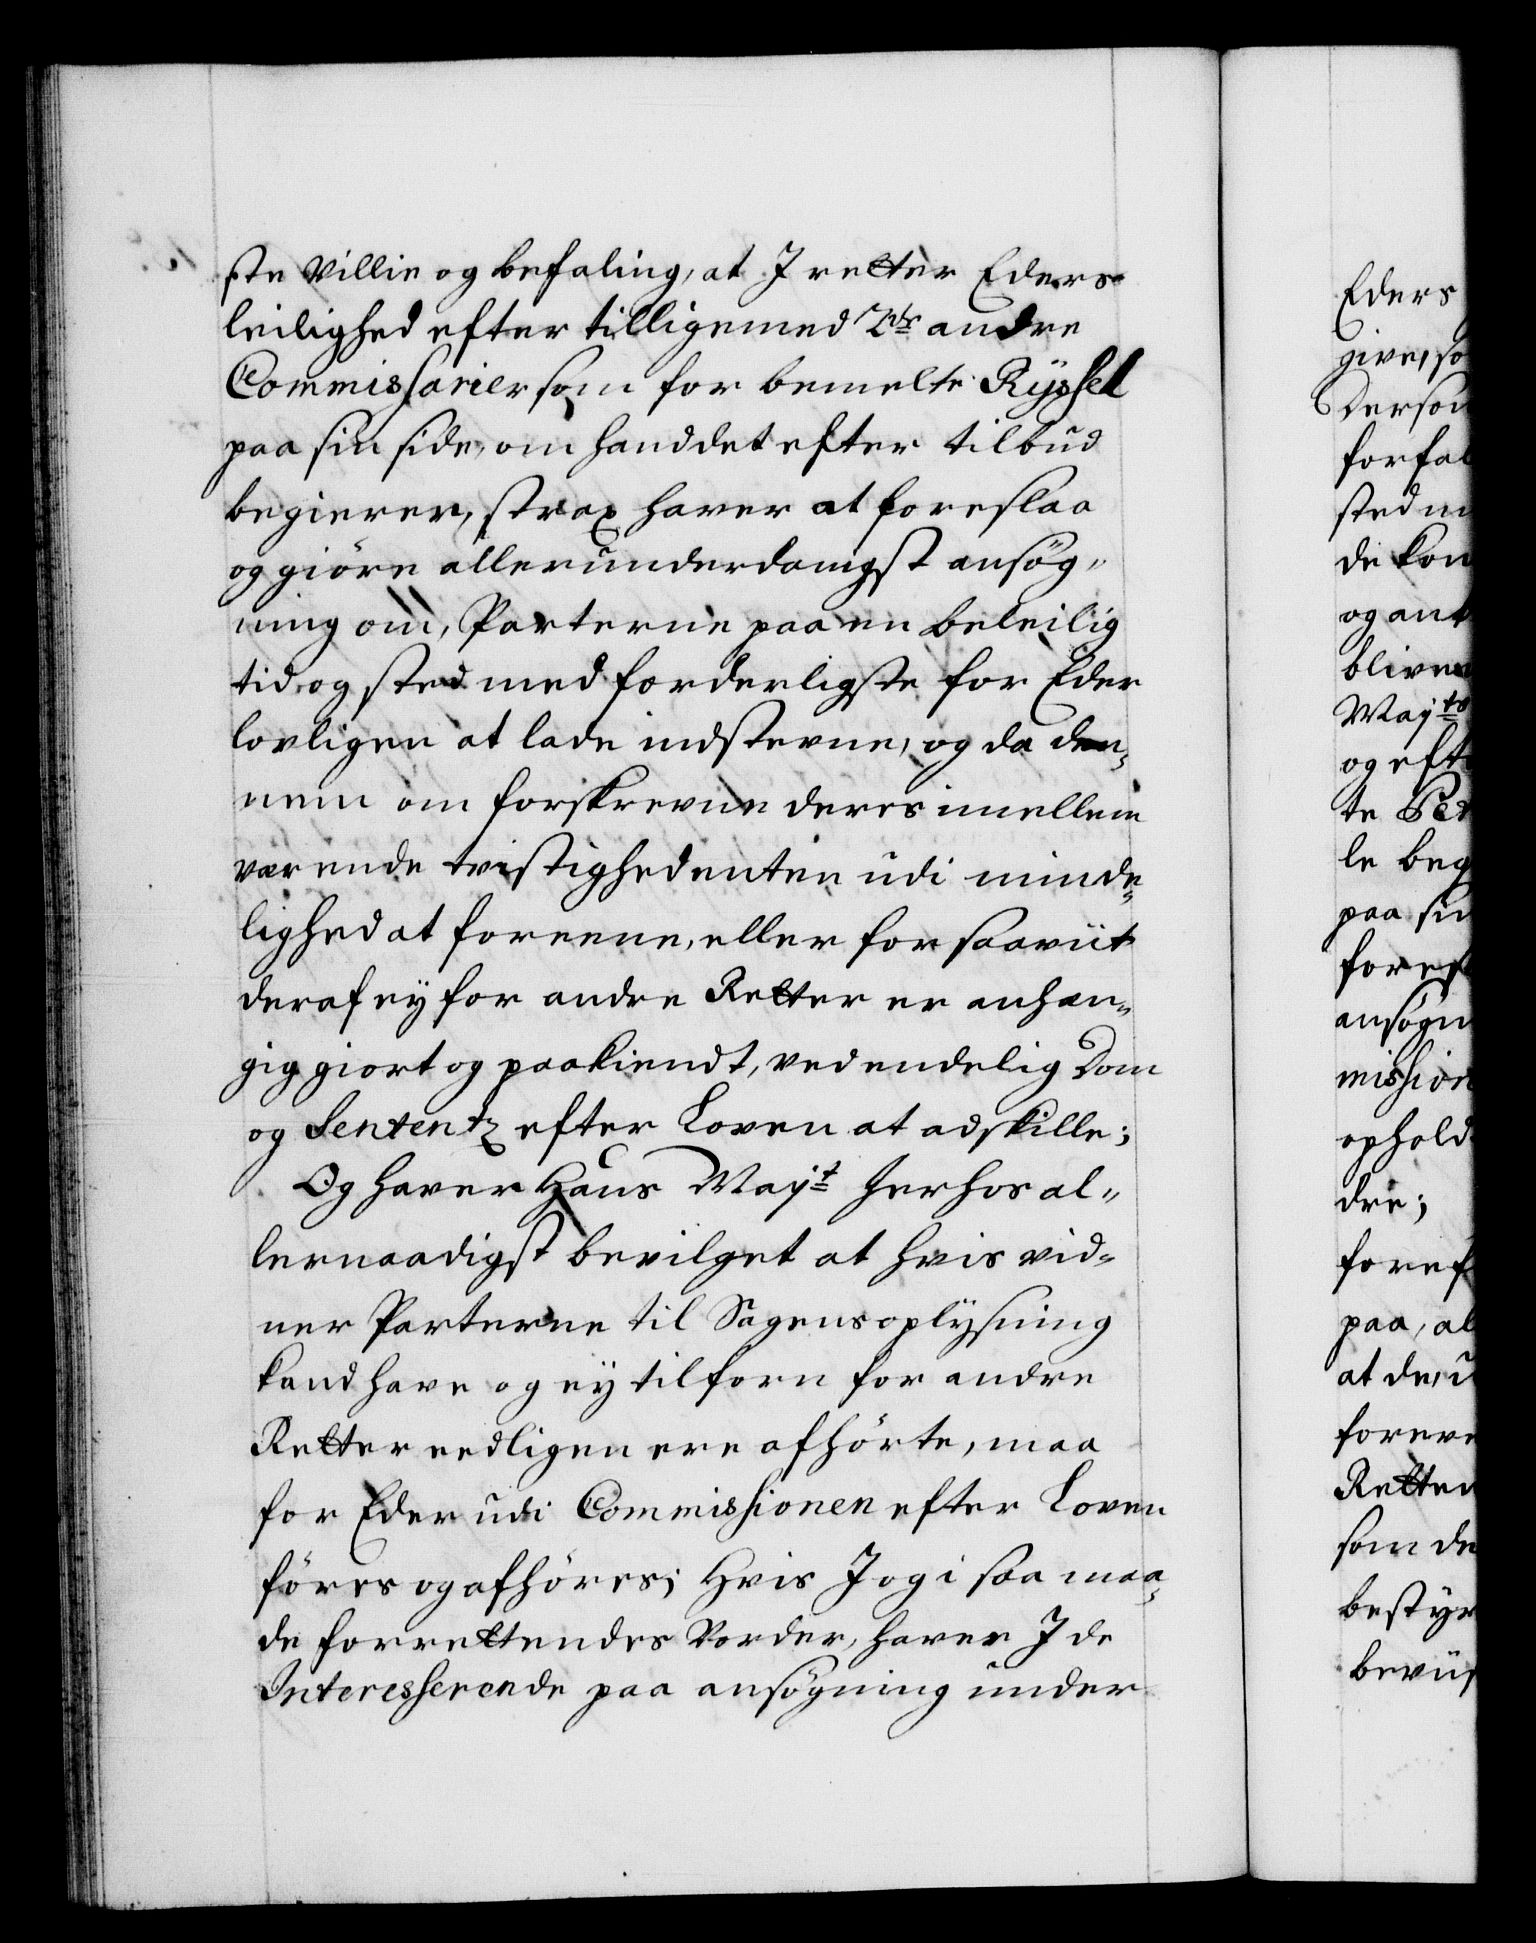 ste Villie og befaling, at I retter Eders
leilighed efter tilligemed andre
Commissarier som for bemelte Ryssel
paa sin side, om hand det efter tilbud
begierer, strax haver at foreslaa
og giöre allerunderdanigst ansög„
ning om, Parterne paa en beleilig
tid og sted med forderligste for Eder
lovligen at lade indstevne, og da den„
nem om forskrevne deres imellem
værende tvistigheder enten udi minde„
lighed at foreene, eller for saaviit
deraf ey for andre Retter er anhæn„
gig giort og paakiendt, ved endelig Dom
og Sententz efter Loven at adskille;
Og haver Hans Mayt herhos al„
lernaadigst bevilget at hvis vid„
ner Parterne til Sagens oplysning
kand have og ey tilforn for andre
Retter eedligen ere afhörte, maa
for Eder udi Commissionen efter Loven
föres og afhöres; Hvis I og i saa maa„
de forrettendes Vorder, haver I de
Interesserende paa ansögning under
Eders
give, so
derson
forfal
sted m
de kon
og ant
bliver
Mayts
og eft
te Ped
le beg
paa sin
foresl
ansögn
mission
ophold
dre;
foref
paa, al
at de, u
foreve
Retten
som de
bestyr
beviis